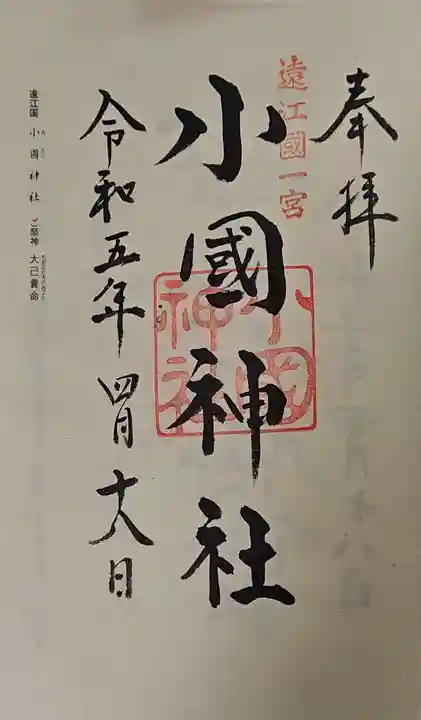 奉拝
遠江國一宮
小國神社
小國神社
令和五年四月十八日
遠江国 小國神社 ご祭神 大己貴命